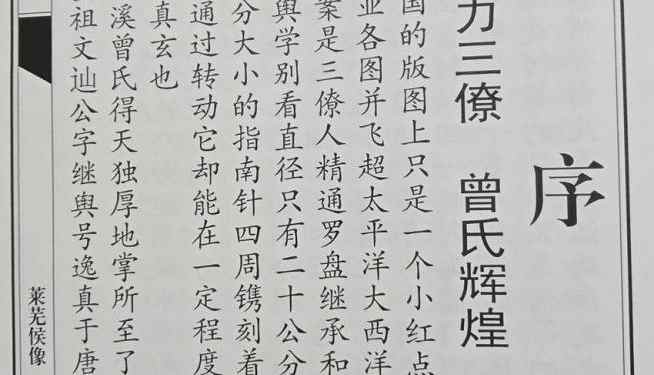 序
力三僚 曾氏辉煌
国的版图上只是一个小红点
业各图并飞超太平洋大西洋
案是三僚人精通罗盘继承和
舆学别看直径只有二十公分
分大小的指南针四周镌刻着
通过转动它却能在一定程度
真玄也
溪曾氏得天独厚地掌所至了
祖文辿公字继舆号逸真于唐
莱芜侯像